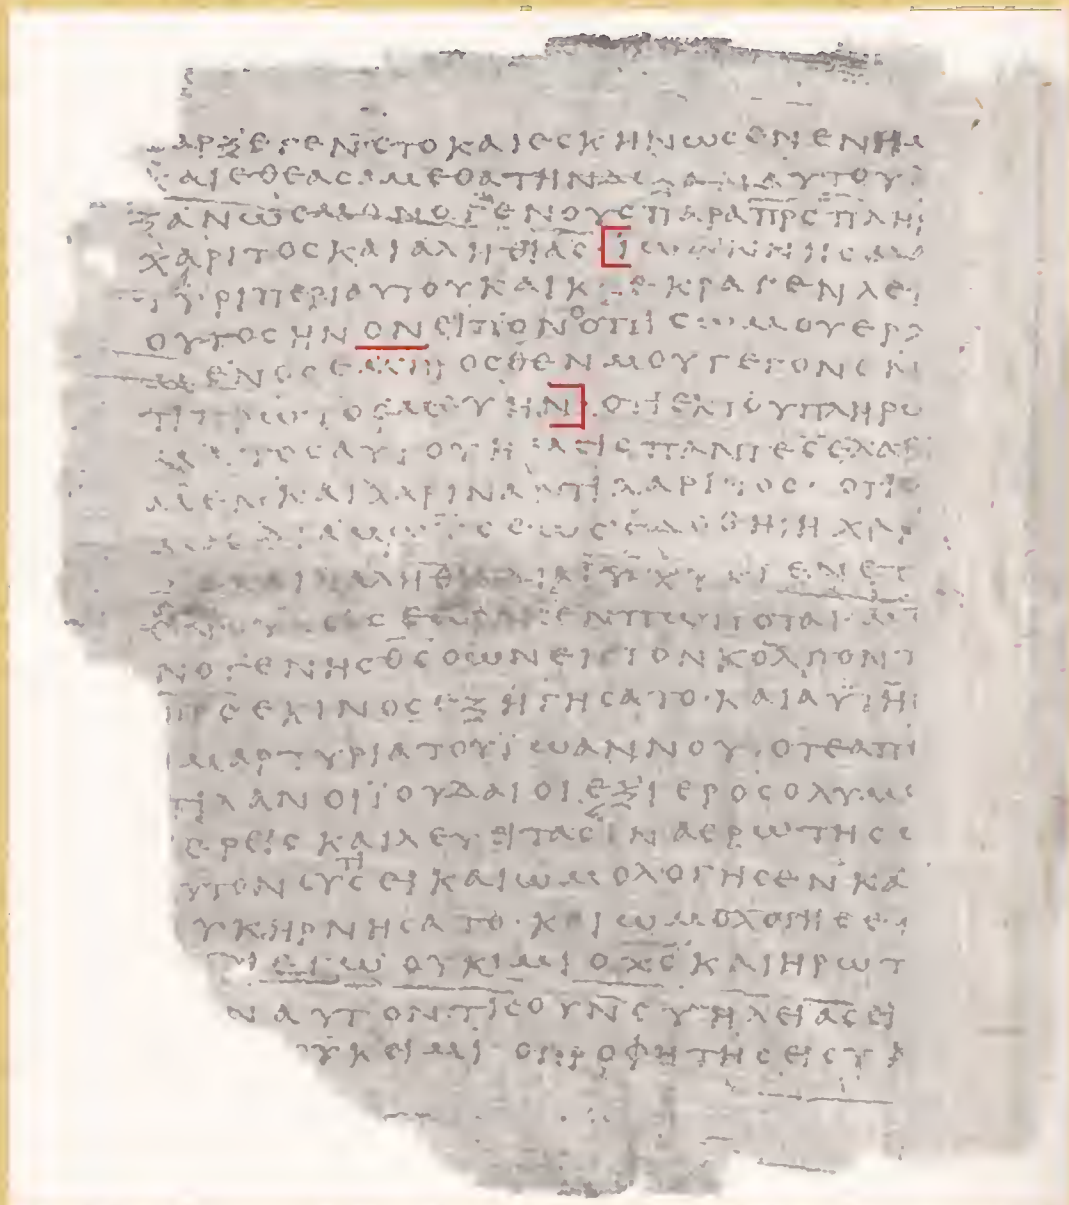 ΑΡΞΕΓΕΝΕΤΟΚΑΙΕϹΚΗΝΩϹΕΝΕΝΗΜ
ΑΙΕΘΕΑϹΑΜΕΘΑΤΗΝΔΟΞΑΝΑΥΤΟΥ
ΞΑΝΩϹΜΟΝΟΓΕΝΟΥϹΠΑΡΑΠ̅Ρ̅Ϲ̅ΠΛΗ
ΧΑΡΙΤΟϹΚΑΙΑΛΗΘΙΑϹ·[ΪΩΑΝΝΗϹΜΑ
ΤΥΡΙΠΕΡΙΑΥΤΟΥΚΑΙΚΕΚΡΑΓΕΝΛΕ
ΟΥΤΟϹΗΝΟΝΕΙΠΟΝΟΟΠΙϹΩΜΟΥΕΡΧ
ΜΕΝΟϹΕΜΠΡΟϹΘΕΝΜΟΥΓΕΓΟΝΕΝ
ΤΙΠΡΩΤΟϹΜΟΥΗΝ]·ΟΤΙΕΚΤΟΥΠΛΗΡΩ
ΑΥΤΟΥΗΜΕΙϹΠΑΝΤΕϹΕΛΑΒ
ΜΕΝΚΑΙΧΑΡΙΝΑΝΤΙΧΑΡΙΤΟϹ·ΟΤΙΟ
ΔΙΑΜΩΥϹΕΩϹΕΔΟΘΗ·ΗΧΑΡ
ΑΛΗΘΕΙΑΔΙΑΙ̅Υ̅Χ̅Υ̅ΕΓΕΝΕΤ
ΝΟΓΕΝΗϹΘ̅Ϲ̅ΟΩΝΕΙϹΤΟΝΚΟΛΠΟΝΤ
Π̅Ρ̅Ϲ̅ΕΚΙΝΟϹΕΞΗΓΗϹΑΤΟ·ΚΑΙΑΥΤΗ
ΜΑΡΤΥΡΙΑΤΟΥΪΩΑΝΝΟΥ·ΟΤΕΑΠΕ
ΤΙΛΑΝΟΙΪΟΥΔΑΙΟΙΕΞΙΕΡΟϹΟΛΥΜΩ
ΕΡΕΙϹΚΑΙΛΕΥΕΙΤΑϹΪΝΑΕΡΩΤΗϹΩ
ΥΤΟΝϹΥΤΙϹΕΙΚΑΙΩΜΟΛΟΓΗϹΕΝΚΑ
ΥΚΗΡΝΗϹΑΤΟ·ΚΑΙΩΜΟΛΟΓΗϹΕ
ΤΙΕΓΩΟΥΚΙΜΙΟΧ̅Ϲ̅ΚΑΙΗΡΩΤ
ΝΑΥΤΟΝ·ΤΙϹΟΥΝϹΥΗΛΕΙΑϹΕΙ
ΟΥΚΕΙΜΙ·ΟΠΡΟΦΗΤΗϹΕΙϹΥΚ